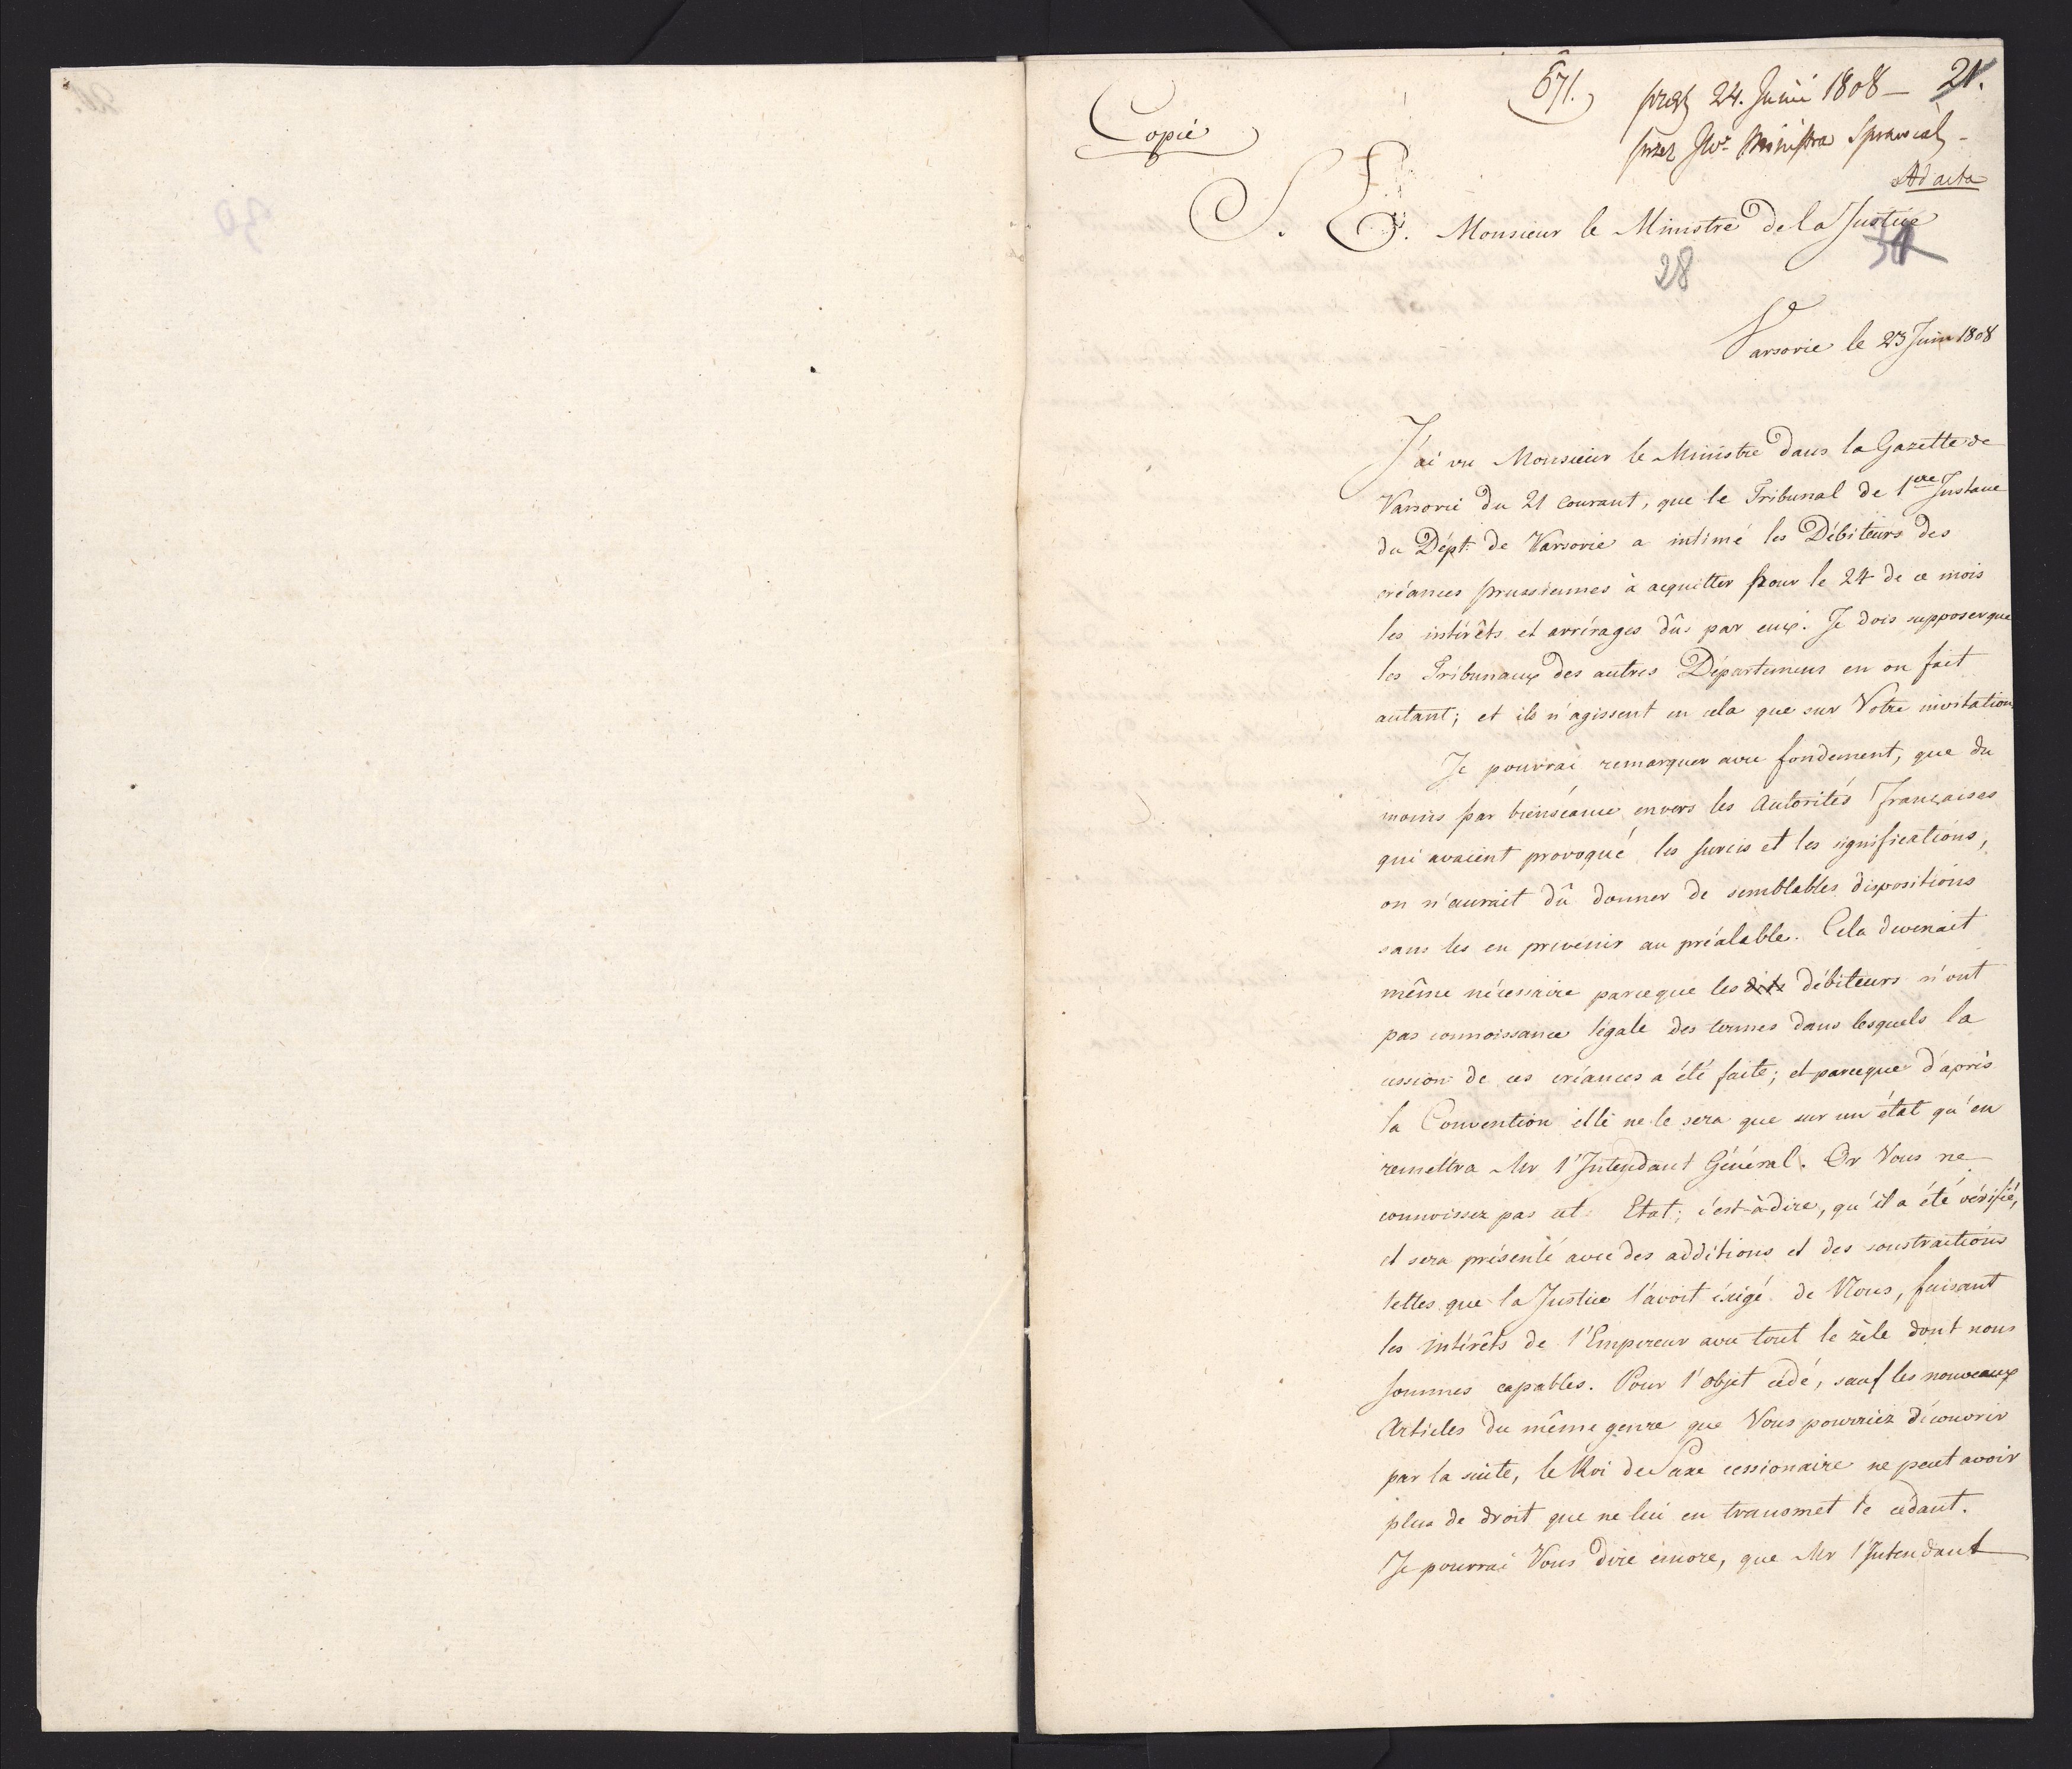 671. 21.
24. Junii 1808 —
przez JW. Ministra
Ad acta
Copie
S. E. Monsieur le Ministre de la Justice
28
Varsovie le 23 Juin 1808
J'ai vu Monsieur le Ministre dans la Gazette de
Varsovie du 21 courant, que le Tribunal de 1ere Instance
du Dépt. de Varsovie a intimé les Débiteurs des
créances prussiennes à acquitter pour le 24 de ce mois
les intérêts et arrérages dûs par eux. Je dois supposer que
les Tribunaux des autres Départemens en on fait
autant; et ils n'agissent en cela que sur Votre invitation
Je pourrai remarquer avec fondement, que du
moins par bienséance envers les Autorités Françaises
qui avaient provoqué les surcis et les significations,
on n'aurait dû donner de semblables dispositions
sans les en prévenir au préalable. Cela devenait
même nécessaire parceque les dits débiteurs n'ont
pas connoissance légale des termes dans lesquels la
cession de ces créances a été faite; et parceque d'après
la Convention elle ne le sera que sur un état qu'en
remettra Mr l'Intendant Général. Or Vous ne
connoissez pas cet Etat; c'est-à-dire, qu'il a été vérifié,
et sera présenté avec des additions et des soustractions
telles que la Justice l'avoit éxigé de Nous, faisant
les intérêts de l'Empereur avec tout le zèle dont nous
sommes capables. Pour l'objet cédé, sauf les nouveaux
Articles du même genre que Vous pourriez découvrir
par la suite, le Roi de Saxe cessionaire ne peut avoir
plus de droit que ne lui en transmet le cédant.
Je pourrai Vous dire encore, que Mr l'Intendant